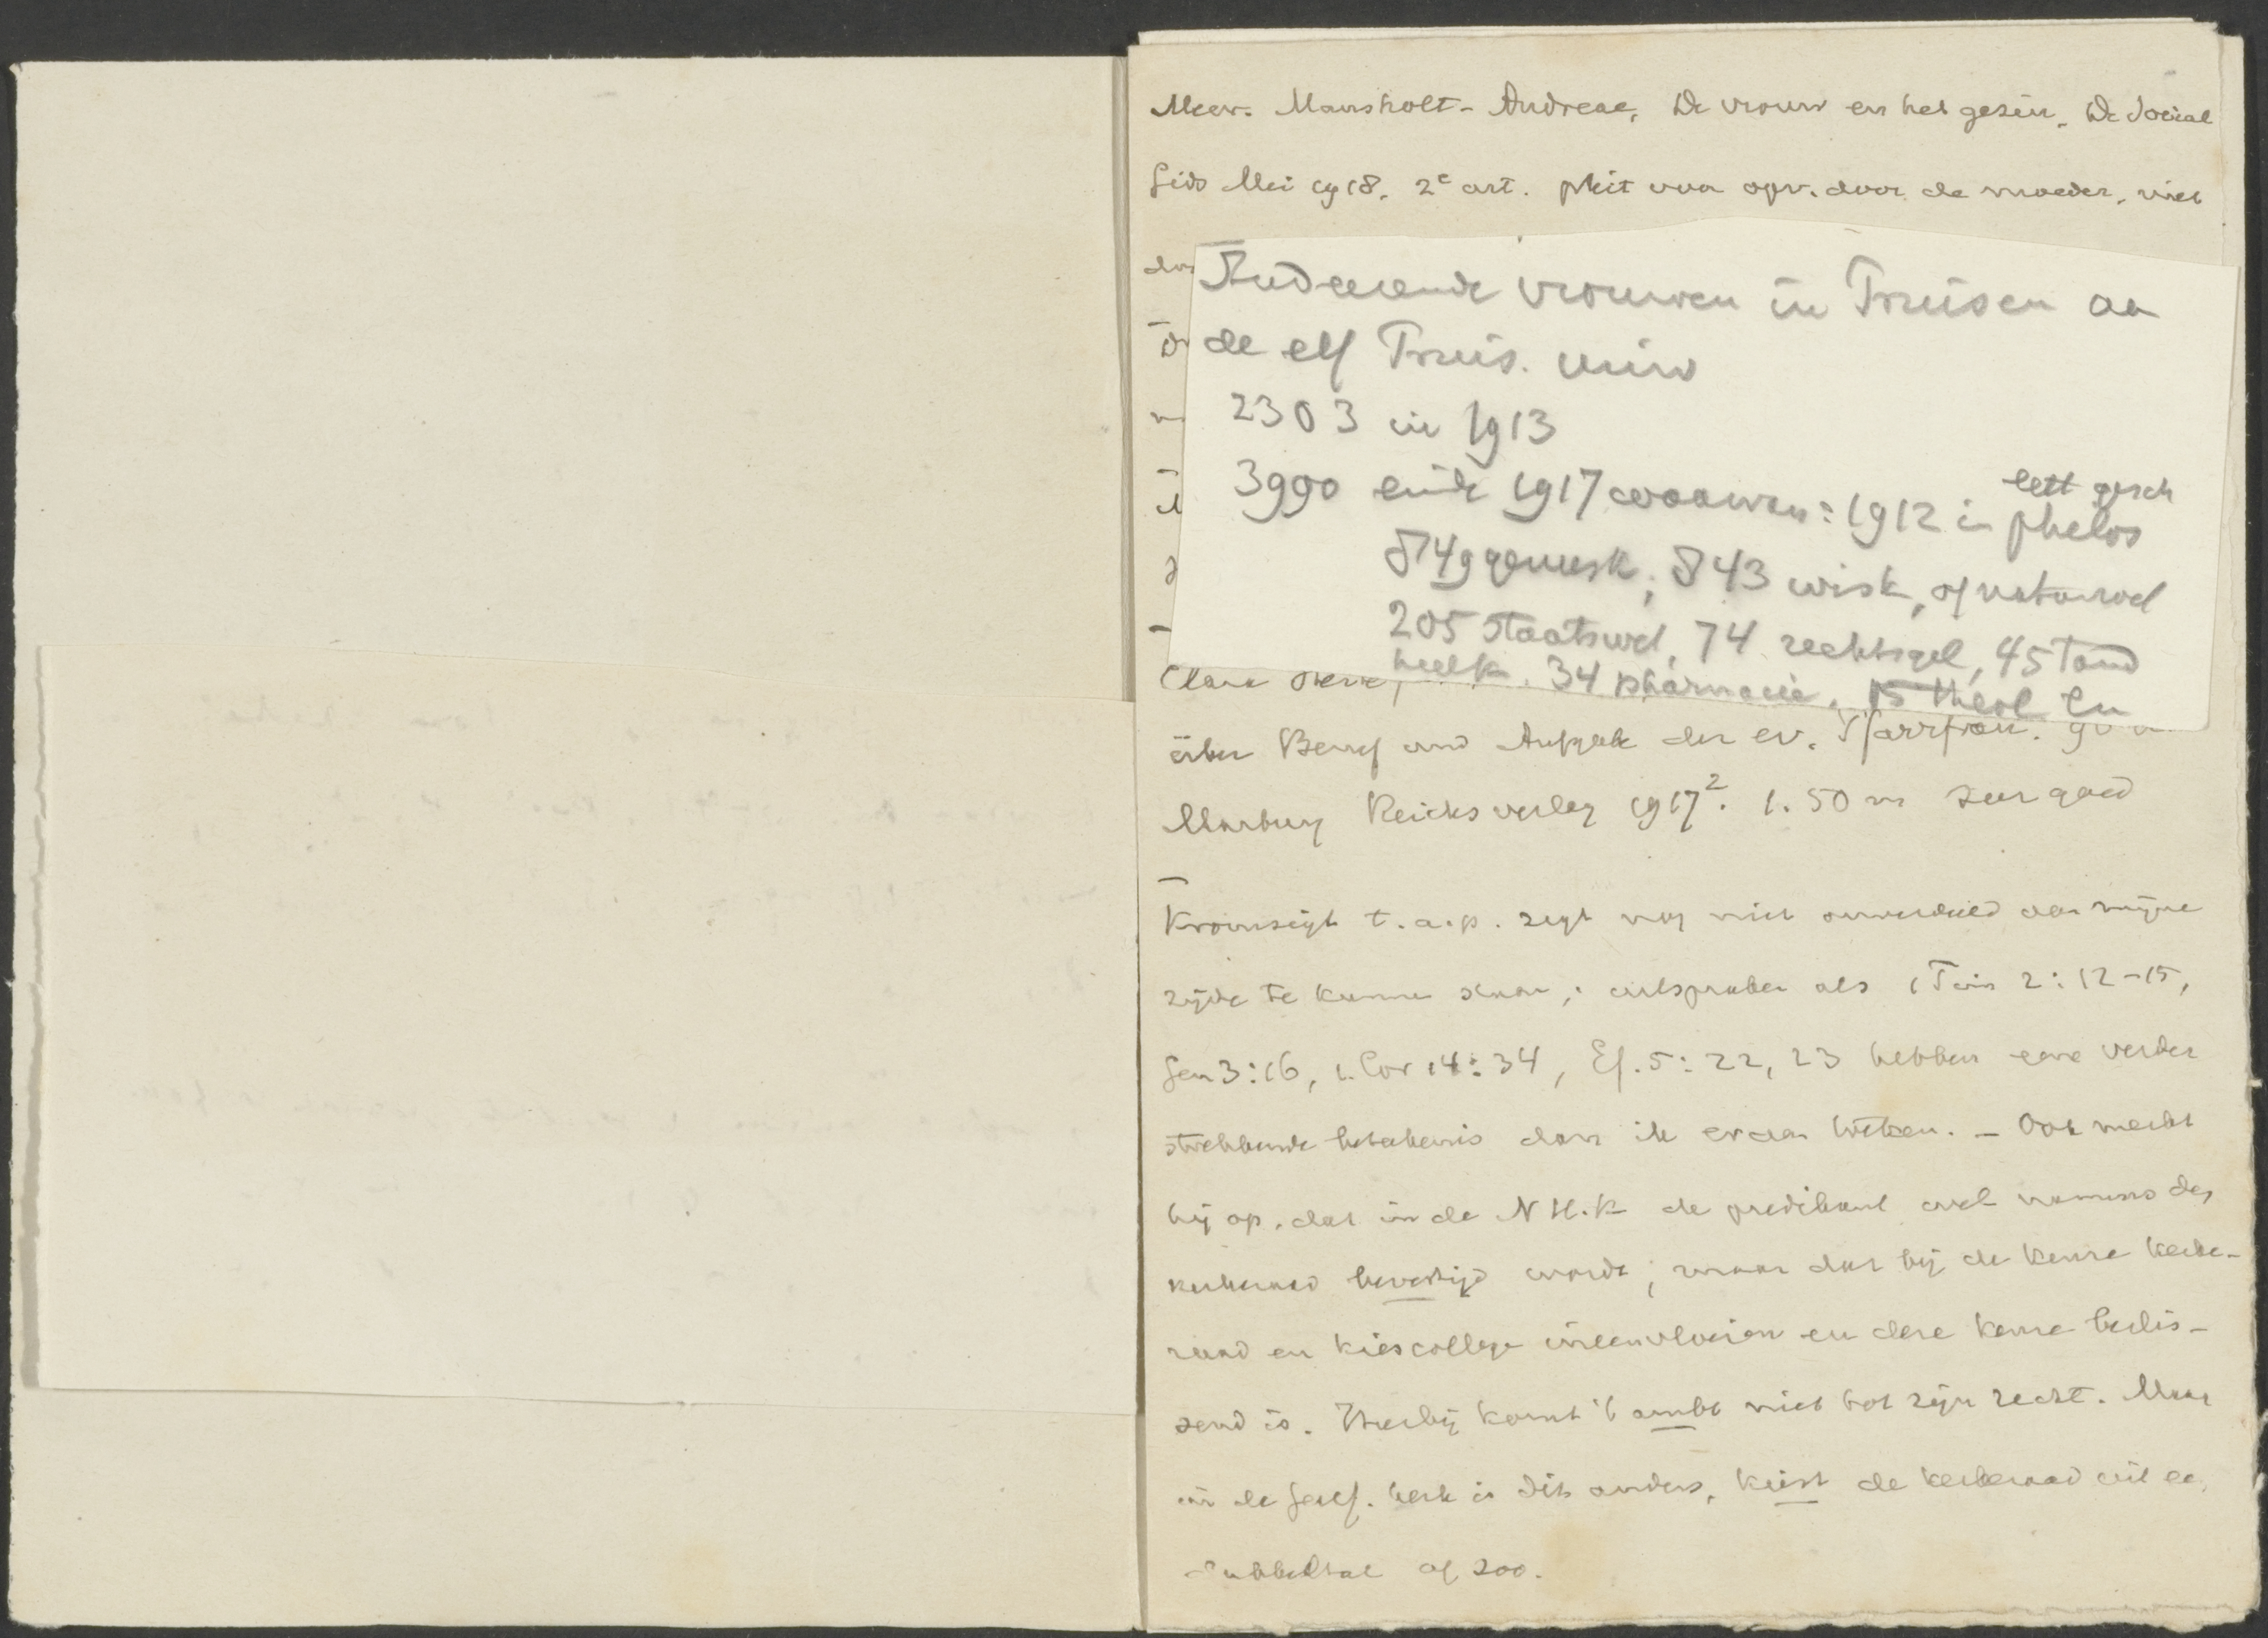 Mevr. Mansholt-Andreae, De vrouw en het gezin, De Social
Gids Mei 1918. 2e art. pleit voor opv. door de moeder, niet
Studeerende vrouwen in Pruisen aa
de elf Pruis. univ
2303 in 1913
3990 einde 1917 waarvan: 1912 in philos
lett gesch
849 geneesk, 843 wisk, of natuurwet
205 staatswet, 74 rechtsgel, 45 tand
heelk. 34 pharmacie, 15 theol En
Clara
über Beruf und Aufgabe der ev. Pfarrfrau.
Marburg Reichsverlag 1917². 1.50 m zeer goed
Kromsigt t.a.p. zegt nog niet onverdeeld aan mijne
zijde te kunnen staan; uitspraken als 1 Tim 2:12-15,
Gen 3:16, 1. Cor 14:34, Ef. 5:22, 23 hebben eene verder
strekkende beteekenis dan ik eraan toeken. - Ook merkt
hij op, dat in de N H.K de predikant wel namens den
kerkeraad bevestigd wordt; maar dat bij de keuze kerke-
raad en kiescollege ineenvloeien en deze keuze beslis-
send is. Hierbij komt 't ambt niet tot zijn recht. Maar
in de Geref. kerk is dit anders, kiest de kerkeraad uit ee
dubbeltal of zoo.